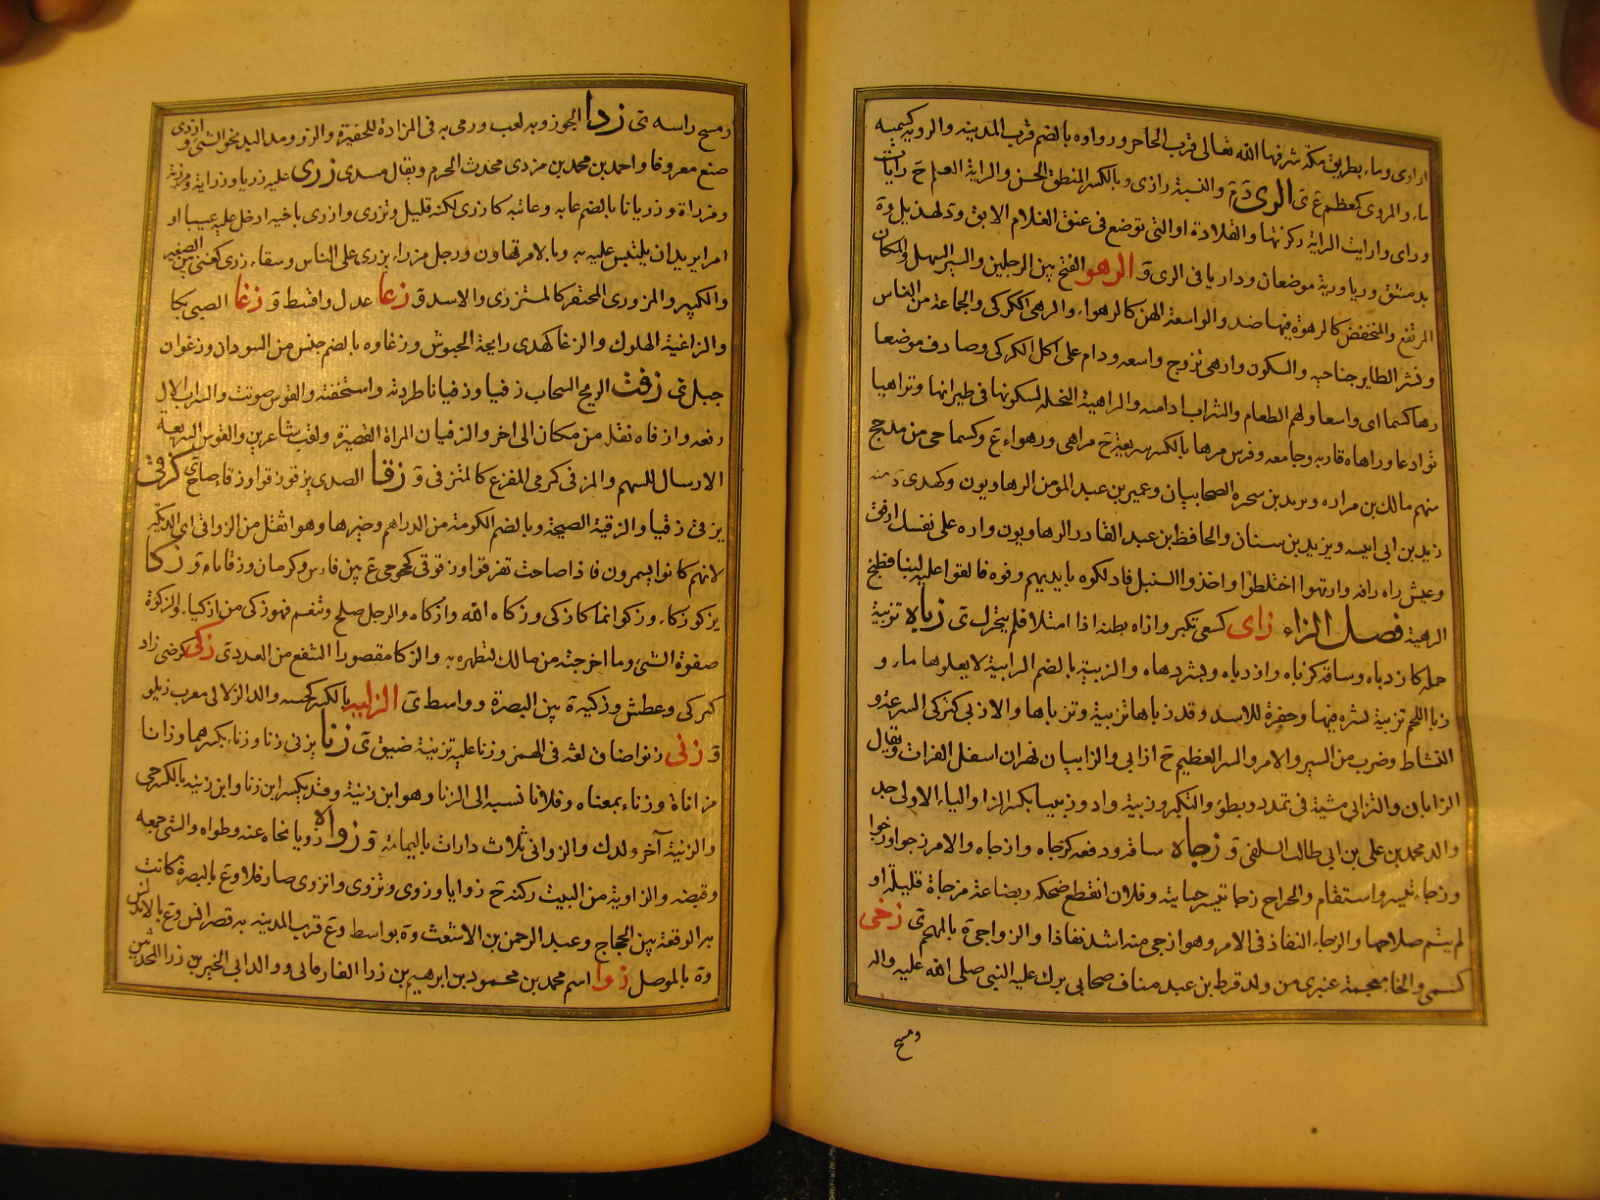 اروى وماء بطريق مكة شرفها الله تعالى قرب الحاجر ورواوه بالضم قرب المدينه والرويه كسميه
ماء والمروى كمعظم ع ى الرى د م والنسبة رازى وبالكسر المنطق الحسن والراية العلم ج رايات
وراى وارايت الراية ركزتها والقلادة او التى توضع فى عنق الغلام الابق ود لهذيل وة
بدمشق وريا ورية موضعان وداريا فى الرى و الرهو الفتح بين الرجلين والسير السهل والمكان
المرتفع والمنخفض كالرهوة فيهما ضد والواسعة الهن كالرهواء والرهى الكركى والجماعة من الناس
ونشر الطاير جناحيه والسكون وارهى تزوج واسعه ودام على اكل الكركى وصادف موضعا
رهاء كسما اى واسعا ولهم الطعام والشراب ادامه والراهية النحلة لسكونها فى طيرانها وتراهيا
توادعا وراهاه قاربه وجامعه وفرس مرهاء بالكسر سريعة ج مراهى ورهواء ع وكسما حى من مذحج
منهم مالك بن مراره ويزيد بن سحره الصحابيان وعمير بن عبد المومن الرهاويون وكهدى د منه
زيد بن ابى انيسه ويزيد بن سنان والحافظ بن عبد القادر الرهاويون واره على نفسك ارفق
وعيش راه رافه وارتهوا اختلطوا واخذوا السنبل فادلكوه بايديهم وفوه فالقوا عليه لبنا فطبخ
الرهية فصل الزاء زاى كسعى تكبر وازاه بطنه اذا امتلا فلم يتحرك ى زباه تزبية
حمله كازدباه وساقه كزباه وازدباه وبشر دهاه والزبية بالضم الرابية لا يعلوها ماء و
زبا اللحم تزبية نشره فيها وحفرة للاسد وقد زباها تزبية وتزباها والازبى كتركى السرعة و
النشاط وضرب من السير والامر والشر العظيم ج ازابى والزابيان نهران اسفل الفرات ويقال
الزابان والتزابى مشية فى تمدد وبطؤ والتكبر وزبية واد وزبييا بكسر الزا والياء الاولى جد
والد محمد بن على بن ابى طالب السلفى و زجاه ساقه ودفعه كزجاه وازجاه والامر زجوا وزجوا
وزجاء تيسر واستقام والخراج زجا تيسر جبايته وفلان انقطع ضحكه وبضاعة مزجاة قليلة او
لم يتم صلاحها والزجاء النفاذ فى الامر وهو ازجى منه اشد نفاذا والزواجى ة بالهجم ى زخى
كسمى والخاء معجمة عنبرى من ولد قرط بن عبد مناف صحابى برك عليه النبى صلى الله عليه واله
ومسح
ومسح راسه ى زدا الجوز وبه لعب ورمى به فى المزداة للحفيرة والزدو مد اليد نحو الشئ وازدى
صنع معروفا واحمد بن محمد بن مزدى محدث الحرم ويقال مسدى زرى عليه زريا وزراية ومزرية
ومزراة وزريانا بالضم عابه وعاتبه كازرى لكنه قليل وتزرى وازرى باخيه ادخل عليه عيبا او
امرا يريد ان يلبس عليه به وبالامر تهاون ورجل مزراء يزرى على الناس وسقاء زرى كغنى بين الصغير
والكبير والمزورى المحتقر كالمستزرى والاسد و زعا عدل واقسط و زغا الصبى بكا
والزاغية الهلوك والزغا كهدى رايحة الحبوش وزغاوه بالضم جنس من السودان وزغوان
جبل ى زفت الريح السحاب زفيا وزفيانا طردته واستخفته والقوس صوتت والسراب الال
رفعه وازفاه نقله من مكان الى اخر والزفيان المراة القصيرة ولقب شاعرين والقوس السريعة
الارسال للسهم والمزفى كرمى المفزع كالمتزفى و زقا الصدى يزقو زقوا وزقاء صاح ى كزقى
يزقى زقيا والزقية الصيحة وبالضم الكومة من الدراهم وغيرها وهو اثقل من الزواقى اى الديكة
لانهم كانوا يسمرون فاذا صاحت تفرقوا وزقوقى كخجوجى ع بين فارس وكرمان وزقاباه و زكا
يزكو زكاء وزكوا نما كازكى وزكاه الله وازكاه والرجل صلح وتنعم فهو زكى من ازكياء والزكوة
صفوة الشئ وما اخرجته من مالك لتطهره به والزكا مقصورا الشفع من العدد ى زكى كرضى زاد
كتزكى وعطش وزكية ة بين البصرة وواسط ى الزلية بالكسر كجنسه والد الزلالى معرب زيلو
و زنى زنوا ضاق لغه فى الهمز وزنا عليه تزنية ضيق ى زنا يزنى زنا وزناء بكسرهما وزانا
مزاناة وزناء بمعناه وفلانا نسبه الى الزنا وهو ابن زنية وقد يكسر ابن زنا وابن زنيه بالكسر حى
والزنية آخر ولدك والزوانى ثلاث دارات باليمامة و زواه زويا نحاه عنه وطواه والشى جمعه
وقبضه والزاوية من البيت ركنه ج زوايا وزوى وتزوى وانزوى صار فلا وع بالبصرة كانت
بر الوقعة بين الحجاج وعبد الرحمن بن الاشعث وة بواسط وع قرب المدينه به قصر انس وع بالاندلس
وة بالموصل زوا اسم محمد بن محمود بن ابرهيم بن زدا الفارفانى ووالد ابى الخير بن زرا المحدثين